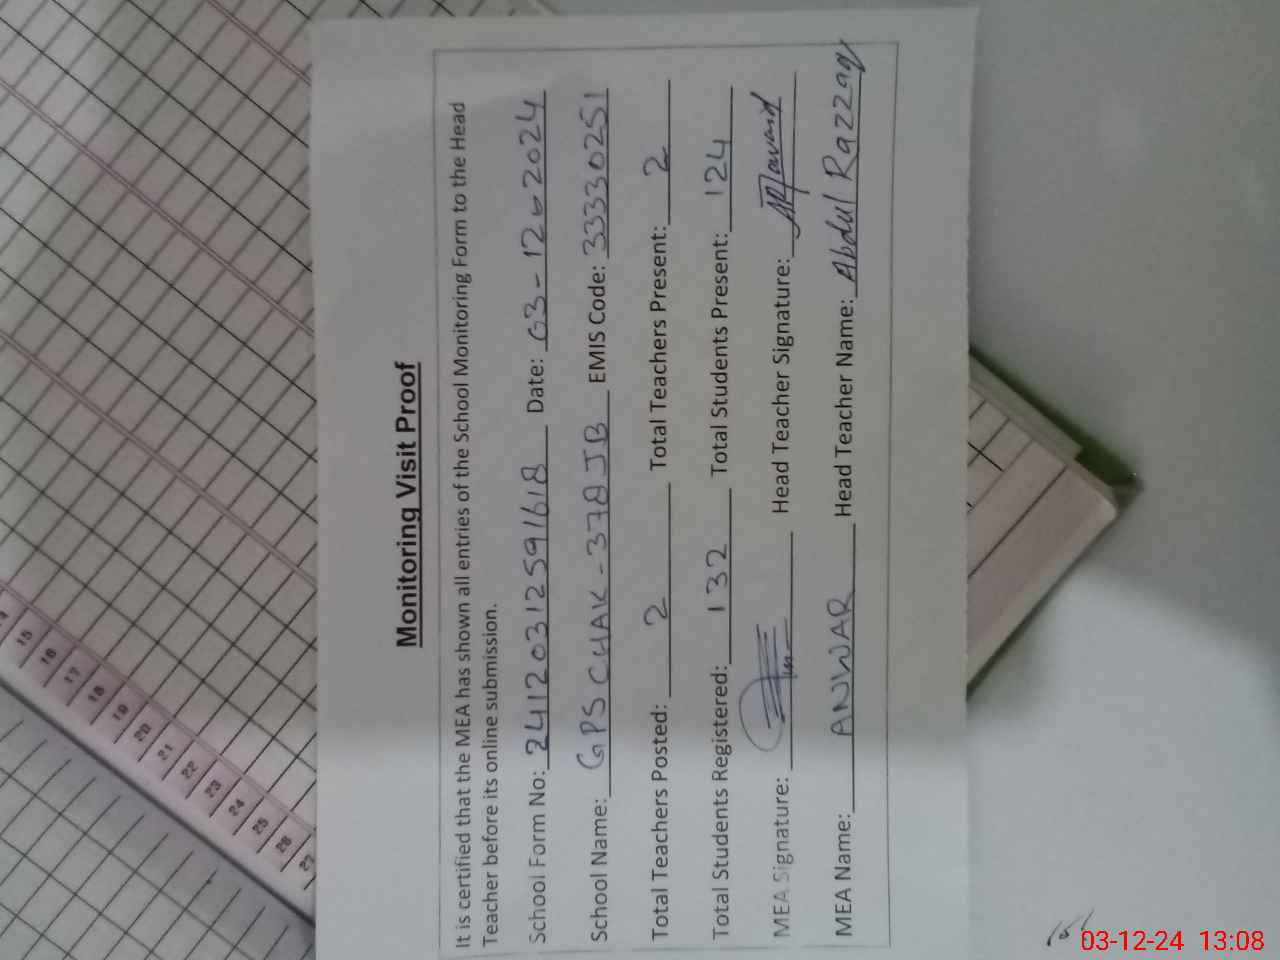 Monitoring Visit Proof
It is certified that the MEA has shown all entries of the School Monitoring Form to the Head
Teacher before its online submission.
School Form No: 24120312591618 Date: 03-12-2024
School Name: GPS CHAK-378JB EMIS Code: 33330251
Total Teachers Posted: 2 Total Teachers Present: 2
Total Students Registered: 132 Total Students Present: 124
MEA Signature: Head Teacher Signature:
MEA Name: ANWAR Head Teacher Name: Abdul Razzaq
15
16
17
18
19
20
21
22
23
24
25
26
27
03-12-24 13:08